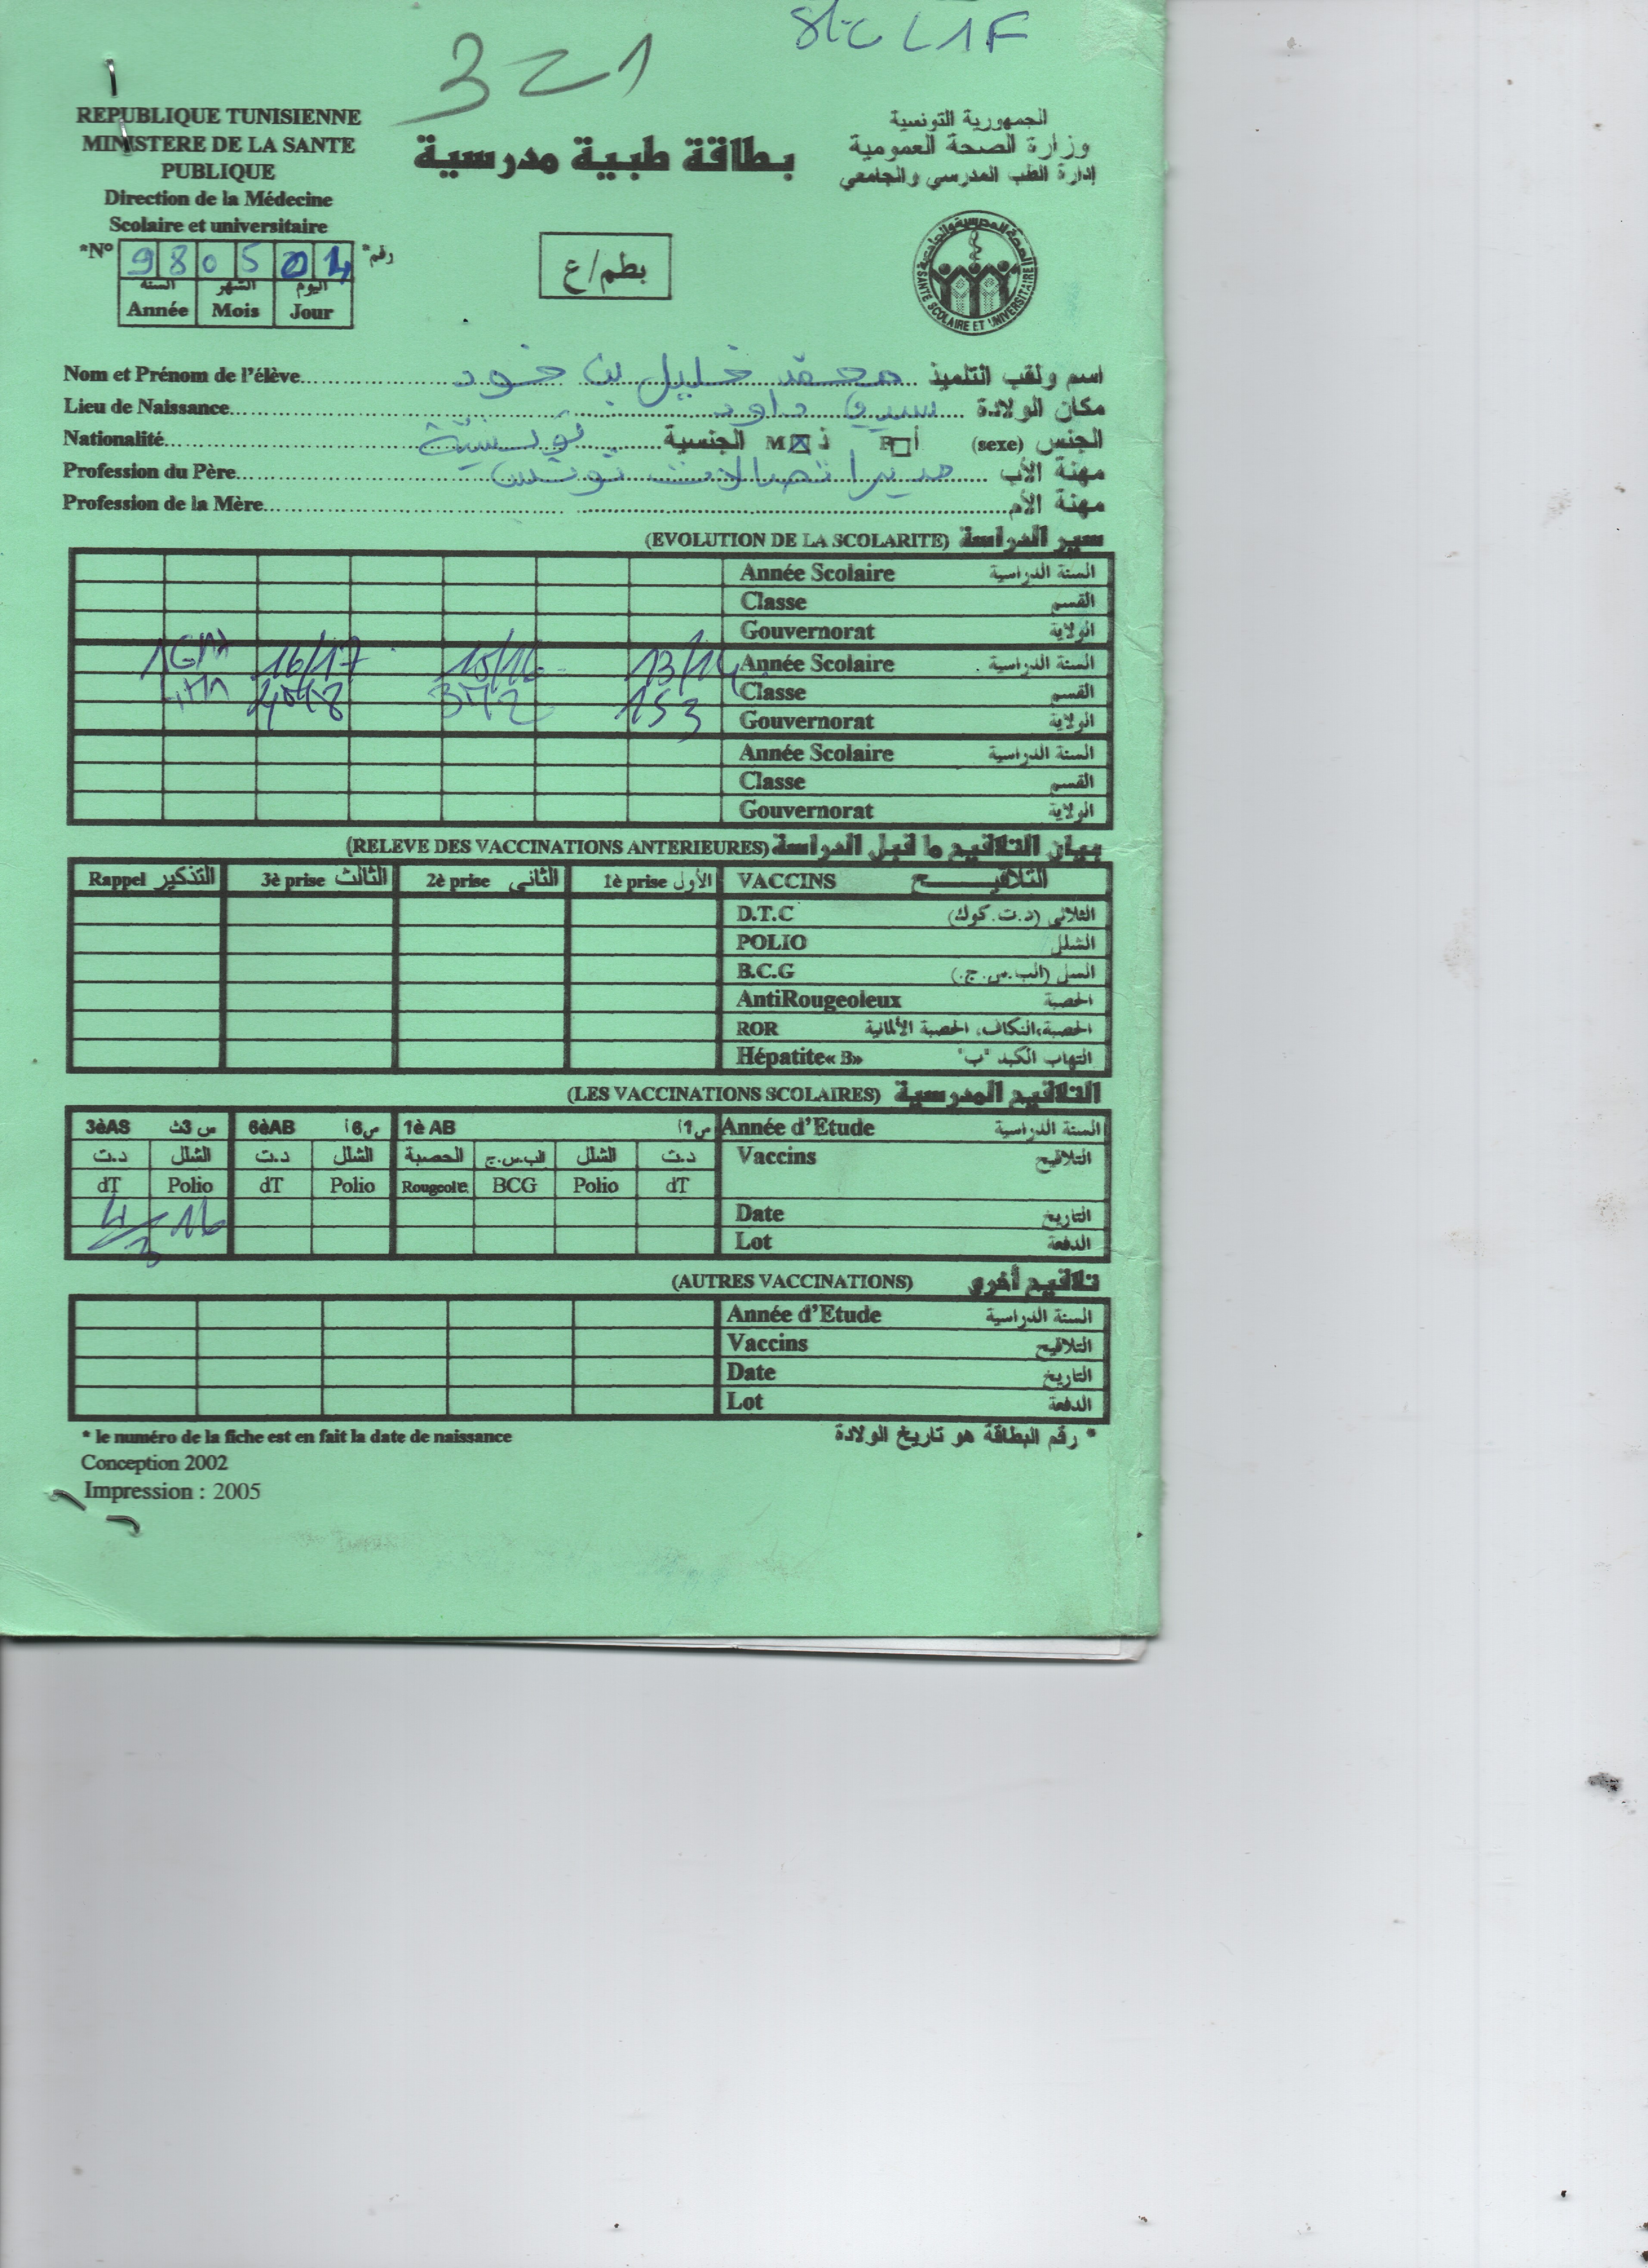 321
REPUBLIQUE TUNISIENNE
MINISTERE DE LA SANTE
PUBLIQUE
Direction de la Médecine
Scolaire et universitaire
بطاقة طبية مدرسية
الجمهورية التونسية
وزارة الصحة العمومية
إدارة الطب المدرسي والجامعي
*N° 9 8 0 5 رقم*
السنة الشهر اليوم
Année Mois Jour
بطم/ع
الصحة المدرسية والجامعية
SANTE SCOLAIRE ET UNIVERSITAIRE
Nom et Prénom de l'élève محمد خليل بن اسم ولقب التلميذ
Lieu de Naissance سيدي داود مكان الولادة
Nationalité تونسية الجنسية M ☒ ذ F ☐ أ (sexe) الجنس
Profession du Père مدير اتصالات تونس مهنة الأب
Profession de la Mère مهنة الأم
(EVOLUTION DE LA SCOLARITE) سير الدراسة
Année Scolaire السنة الدراسية
Classe القسم
Gouvernorat الولاية
16/17 15/16 13/14 Année Scolaire السنة الدراسية
Classe القسم
1S3 Gouvernorat الولاية
Année Scolaire السنة الدراسية
Classe القسم
Gouvernorat الولاية
(RELEVE DES VACCINATIONS ANTERIEURES) بيان التلاقيح ما قبل الدراسة
Rappel التذكير 3è prise الثالث 2è prise الثاني 1è prise الأول VACCINS التلاقيح
D.T.C الثلاثي (د.ت.كوك)
POLIO الشلل
B.C.G السل (الب.س.ج.)
AntiRougeoleux الحصبة
ROR الحصبة،النكاف، الحصبة الألمانية
Hépatite« B» التهاب الكبد "ب"
(LES VACCINATIONS SCOLAIRES) التلاقيح المدرسية
3èAS س 3ث 6èAB س6أ 1è AB س1أ Année d'Etude السنة الدراسية
د.ت الشلل د.ت الشلل الحصبة الب.س.ج الشلل د.ت Vaccins التلاقيح
dT Polio dT Polio Rougeole BCG Polio dT
4/3 16 Date التاريخ
Lot الدفعة
(AUTRES VACCINATIONS) تلاقيح أخرى
Année d'Etude السنة الدراسية
Vaccins التلاقيح
Date التاريخ
Lot الدفعة
* le numéro de la fiche est en fait la date de naissance * رقم البطاقة هو تاريخ الولادة
Conception 2002
Impression : 2005